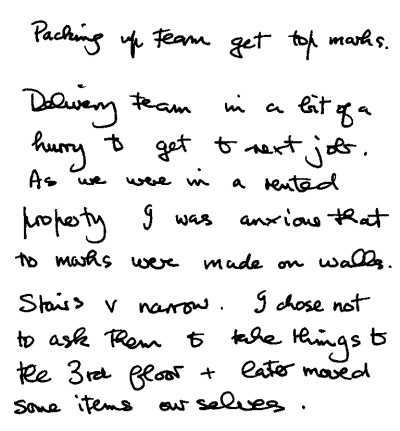 Packing up team get top marks.
Delivery team in a bit of a
hurry to get to next job.
As we were in a rented
property I was anxious that
to marks were made on walls.
Stairs v narrow. I chose not
to ask them to take things to
the 3rd floor + later moved
some items ourselves.